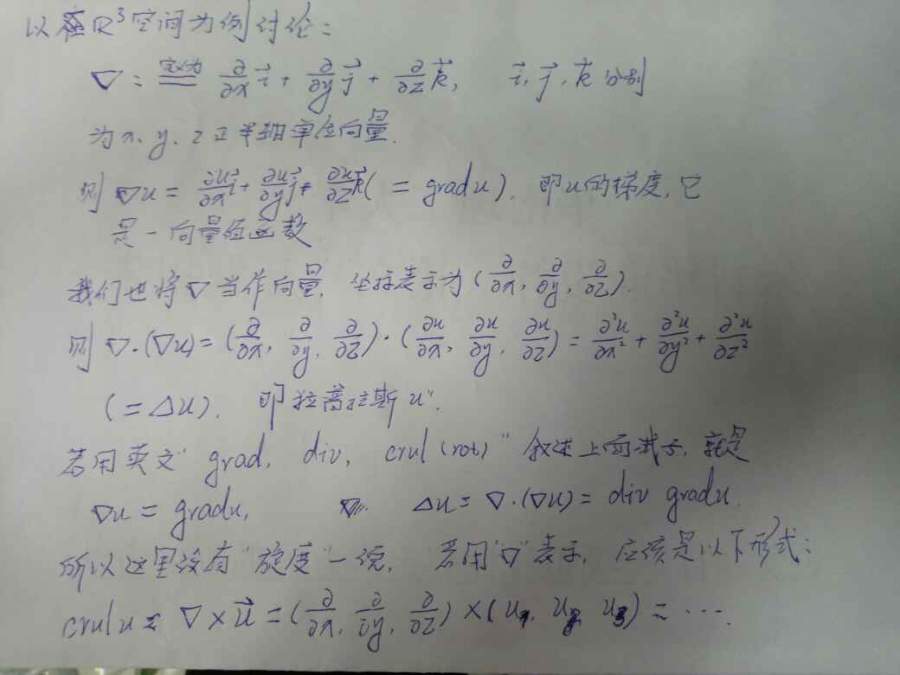 以在R³空间为例讨论：
∇ := 定义为 ∂/∂x i⃗ + ∂/∂y j⃗ + ∂/∂z k⃗, i⃗, j⃗, k⃗ 分别
为 x、y、z 正半轴单位向量.
则 ∇u = ∂u/∂x i⃗ + ∂u/∂y j⃗ + ∂u/∂z k⃗ (= gradu). 即u的梯度, 它
是一向量值函数
我们也将∇当作向量, 坐标表示为 (∂/∂x, ∂/∂y, ∂/∂z).
则 ∇·(∇u) = (∂/∂x, ∂/∂y, ∂/∂z)·(∂u/∂x, ∂u/∂y, ∂u/∂z) = ∂²u/∂x² + ∂²u/∂y² + ∂²u/∂z²
(= Δu). 即"拉普拉斯u".
若用英文"grad, div, crul (rot)"叙述上面式子, 就是
∇u = gradu, Δu = ∇·(∇u) = div gradu.
所以这里没有"旋度"一说, 若用"∇"表示, 应该是以下形式:
crulu = ∇×u⃗ = (∂/∂x, ∂/∂y, ∂/∂z)×(u₁, u₂, u₃) = ...